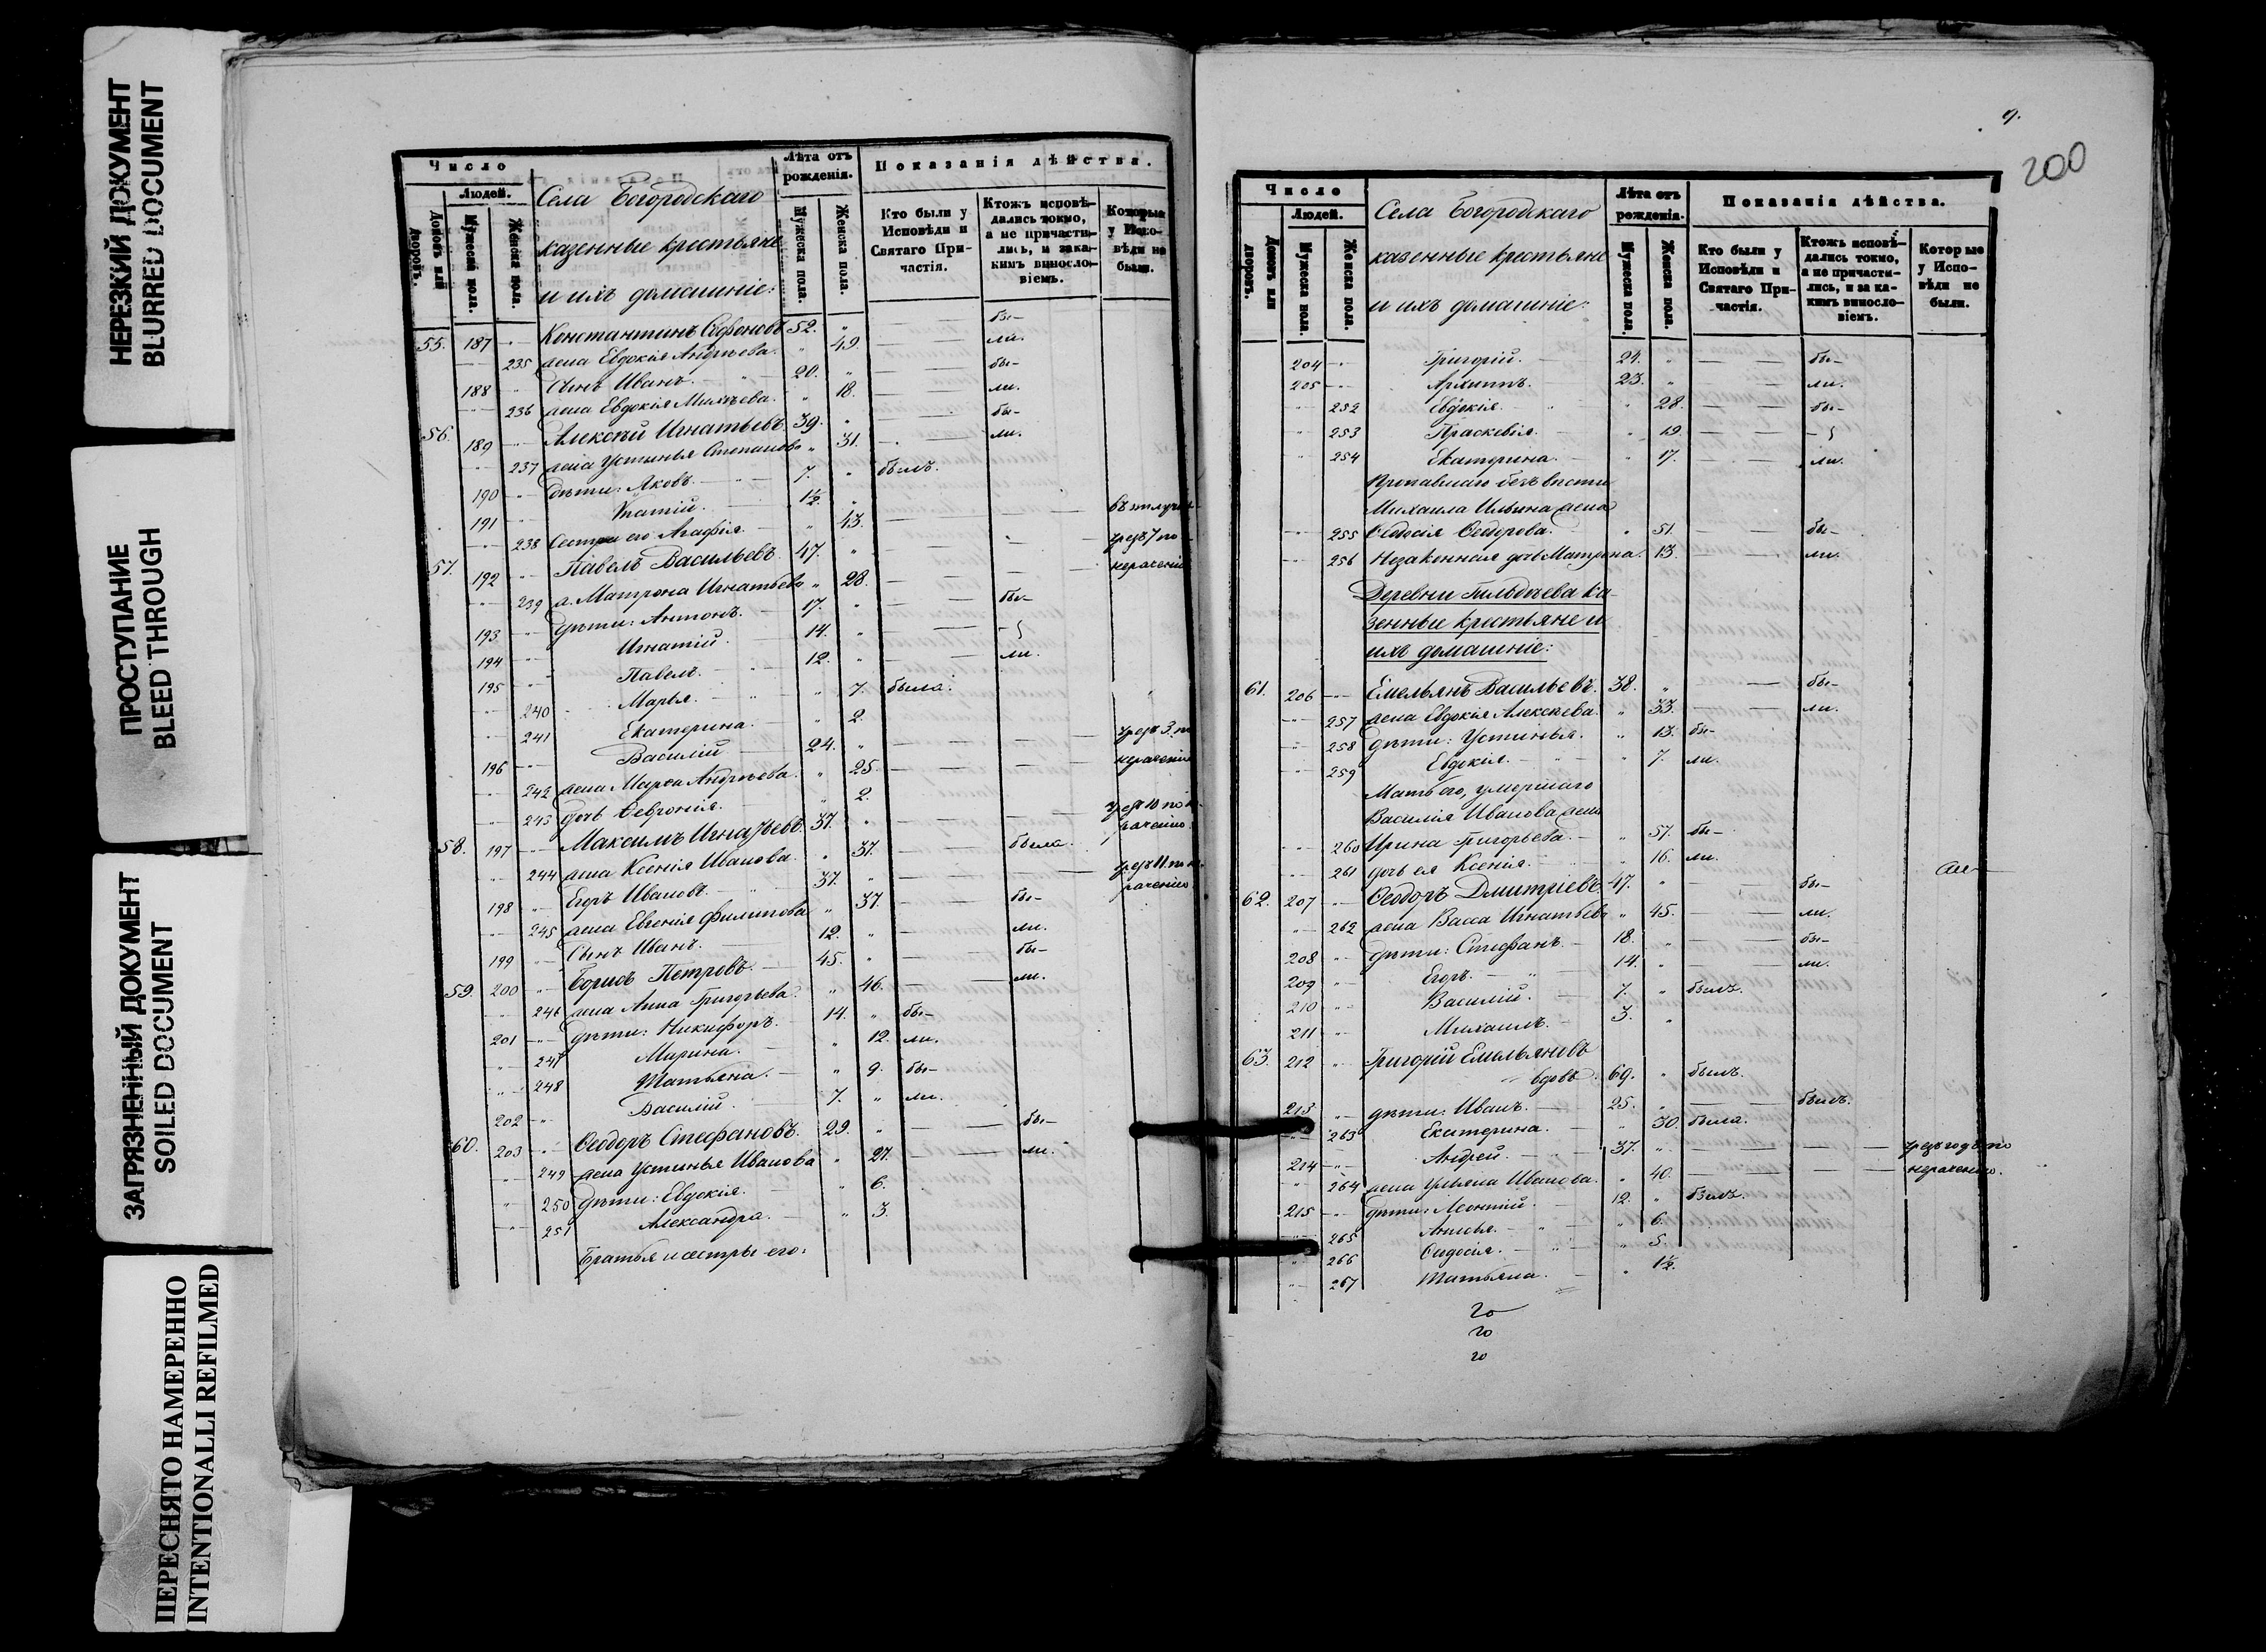 НЕРЕЗКИЙ ДОКУМЕНТ
BLURRED DOCUMENT
ПРОСТУПАНИЕ
BLEED THROUGH
ЗАГРЯЗНЕННЫЙ ДОКУМЕНТ
SOILED DOCUMENT
ПЕРЕСНЯТО НАМЕРЕННО
INTENTIONALLI REFILMED
Число
Людей.
Домовъ или дворовъ.
Мужеска пола.
Женска пола.
Села Богородскаго
казенные крестьяне
и ихъ домашніе:
Лѣта отъ рожденія.
Мужеска пола.
Женска пола.
Показанія дѣйства.
Кто были у Исповѣди и Святаго При-частія.
Ктожъ исповѣ-дались токмо, а не причасти-лись, и зака-кимъ винослo-віемъ.
Которые у Испо-вѣди не были.
55. 187 Константинъ Софоновъ 52. бы-
235 жена Евдокія Андреева. 49. ли.
188 Сынъ Иванъ. 20. бы-
236 жена Евдокія Михѣева. 18. ли.
56. 189 Алексѣй Игнатьевъ. 39. бы-
237 жена Устинья Степанова 31. ли.
190 дѣти: Яковъ. 7. былъ.
191 Ипатій. 1½.
238 Сестра его Агафія. 43. въ отлучкѣ
57. 192 Павелъ Васильевъ. 47. чрезъ 7 по
239 ж. Матрона Игнатьева 28. нераченію
193 дѣти: Антонъ. 17. бы-
194 Игнатій. 14.
195 Павелъ. 12. ли.
240 Марья. 7. была.
241 Екатерина. 2.
196 Василій 24. чрезъ 3. по
242 жена Марѳа Андреева. 25. нераченію
243 дочь Ѳевронія. 2.
58. 197 Максимъ Игнатьевъ. 37. чрезъ 10 по не-раченію.
244 жена Ксенія Иванова. 37. была.
198 Егоръ Ивановъ. 37. чрезъ 11. по не-раченію.
245 жена Евгенія Филипова 37. бы-
199 Сынъ Иванъ. 12. ли.
59. 200 Борисъ Петровъ. 45. бы-
246 жена Анна Григорьева. 46. ли.
201 дѣти: Никифоръ. 14. бы-
247 Марина. 12. ли.
248 Татьяна. 9. бы-
202 Василій. 7. ли.
60. 203 Ѳеодоръ Стефановъ. 29. бы-
249 жена Устинья Иванова 27. ли.
250 дѣти: Евдокія. 6.
251 Александра. 3.
Братья и сестры его:
9.
200
Число
Людей.
Домовъ или дворовъ.
Мужеска пола.
Женска пола.
Села Богородскаго
казенные крестьяне
и ихъ домашніе:
Лѣта отъ рожденія.
Мужеска пола.
Женска пола.
Показанія дѣйства.
Кто были у Исповѣди и Святаго При-частія.
Ктожъ исповѣ-дались токмо, а не причасти-лись, и за ка-кимъ винослo-віемъ.
Которые у Испо-вѣди не были.
204 Григорій. 24. бы-
205 Архиппъ. 23. ли.
252 Евдокія. 28. бы-
253 Праскевія. 19.
254 Екатерина. 17. ли.
Пропавшаго безъ вѣсти
Михаила Ильина жена
255 Ѳеодосія Ѳеодорова. 51. бы-
256 Незаконная дочь Матрона. 13. ли.
Деревни Гильдѣева ка-
зенные крестьяне и
ихъ домашніе:
61. 206 Емельянъ Васильевъ. 38. бы-
257 жена Евдокія Алексѣева. 33. ли.
258 дѣти: Устинья. 13. бы-
259 Евдокія. 7. ли.
Мать его, умершаго
Василія Иванова жена
260 Ирина Григорьева. 57. бы-
261 дочь ея Ксенія. 16. ли.
62. 207 Ѳеодоръ Дмитріевъ. 47. бы-
262 жена Васса Игнатьева 45. ли.
208 дѣти: Стефанъ. 18. бы-
209 Егоръ. 14. ли.
210 Василій. 7. былъ.
211 Михаилъ. 3.
63. 212 Григорій Емельяновъ
вдовъ. 69. былъ.
213 дѣти: Иванъ. 25. былъ.
263 Екатерина. 30. была.
214 Андрей. 37. чрезъ годъ по
264 жена Ульяна Иванова. 40. нераченію.
215 дѣти: Леонтій. 12. былъ.
265 Анисья. 6.
266 Ѳеодосія. 5.
267 Татьяна. 1½.
20
20
20